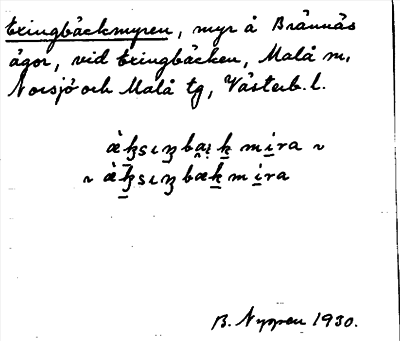 Exingbäckmyren, myr å Brännäs
ägor, vid Exingbäcken, Malå m.
Norsjö och Malå tg, Västerb. l.
àꝁsɩŋba̯i̯ꝁmi̱ra ~
~ àꝁsɩŋbæꝁmi̱ra
B. Nyppen 1930.